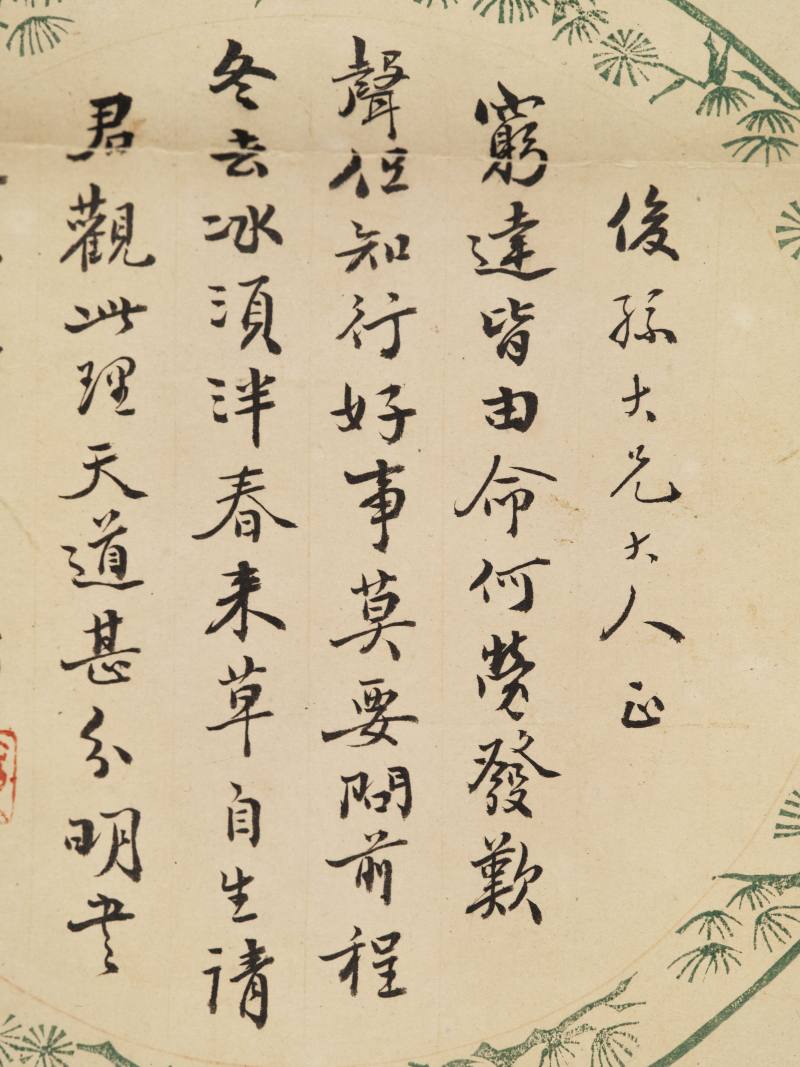 俊孫大兄大人正
窮達皆由命何勞發歎
聲但知行好事莫要問前程
冬去冰須泮春来草自生請
君觀此理天道甚分明書